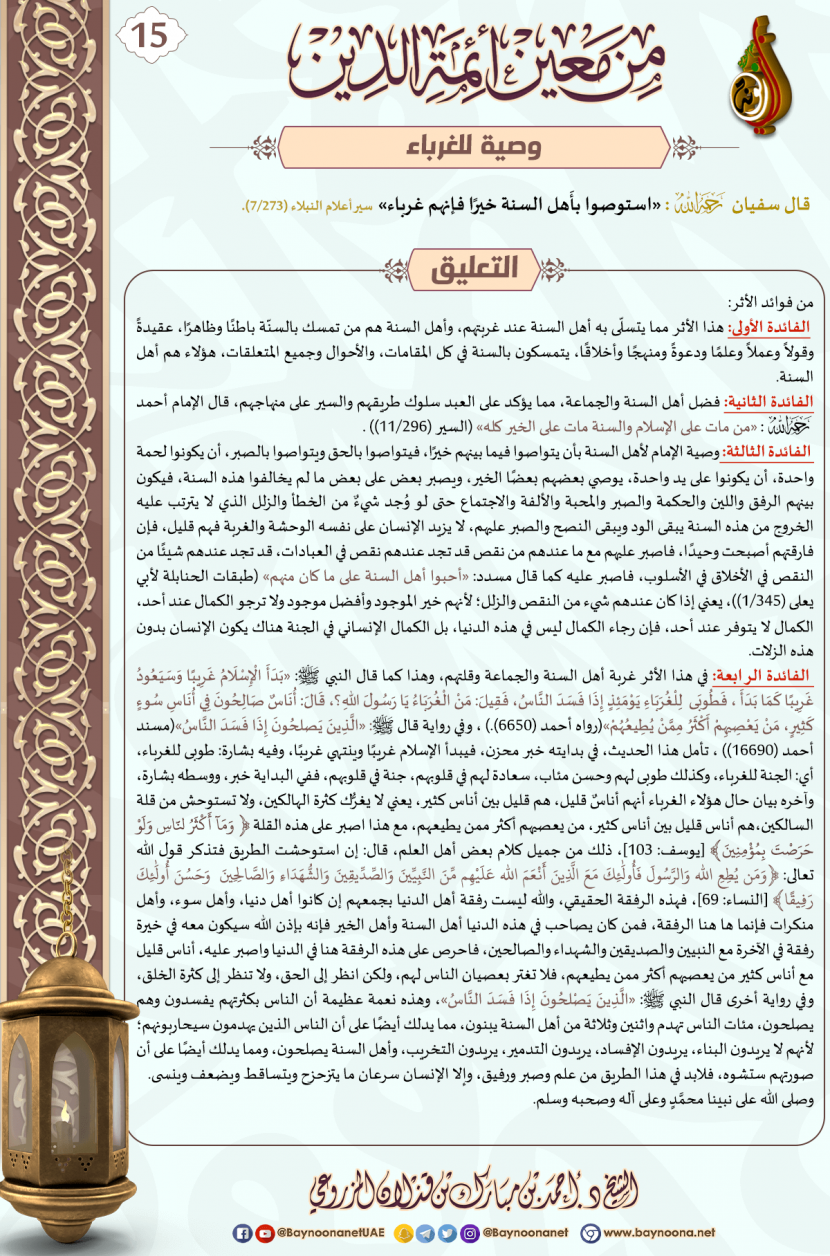 15
من معين أئمة الدين
وصية للغرباء
قال سفيان رحمه الله : «استوصوا بأَهل السنة خيرًا فإنهم غرباء» سير أعلام النبلاء (7/273).
التعليق
من فوائد الأثر:
الفائدة الأولى: هذا الأثر مما يتسلّى به أهل السنة عند غربتهم، وأهل السنة هم من تمسك بالسنّة باطنًا وظاهرًا، عقيدةً
وقولاً وعملاً وعلمًا ودعوةً ومنهجًا وأخلاقًا، يتمسكون بالسنة في كل المقامات، والأحوال وجميع المتعلقات، هؤلاء هم أهل
السنة.
الفائدة الثانية: فضل أهل السنة والجماعة، مما يؤكد على العبد سلوك طريقهم والسير على منهاجهم، قال الإمام أحمد
رحمه الله : «من مات على الإسلام والسنة مات على الخير كله» (السير (11/296)) .
الفائدة الثالثة: وصية الإمام لأهل السنة بأن يتواصوا فيما بينهم خيرًا، فيتواصوا بالحق ويتواصوا بالصبر، أن يكونوا لحمة
واحدة، أن يكونوا على يد واحدة، يوصي بعضهم بعضًا الخير، ويصبر بعض على بعض ما لم يخالفوا هذه السنة، فيكون
بينهم الرفق واللين والحكمة والصبر والمحبة والألفة والاجتماع حتى لو وُجد شيءٌ من الخطأ والزلل الذي لا يترتب عليه
الخروج من هذه السنة يبقى الود ويبقى النصح والصبر عليهم، لا يزيد الإنسان على نفسه الوحشة والغربة فهم قليل، فإن
فارقتهم أصبحت وحيدًا، فاصبر عليهم مع ما عندهم من نقص قد تجد عندهم نقص في العبادات، قد تجد عندهم شيئًا من
النقص في الأخلاق في الأسلوب، فاصبر عليه كما قال مسدد: «أحبوا أهل السنة على ما كان منهم» (طبقات الحنابلة لأبي
يعلى (1/345))، يعني إذا كان عندهم شيء من النقص والزلل؛ لأنهم خير الموجود وأفضل موجود ولا ترجو الكمال عند أحد،
الكمال لا يتوفر عند أحد، فإن رجاء الكمال ليس في هذه الدنيا، بل الكمال الإنساني في الجنة هناك يكون الإنسان بدون
هذه الزلات.
الفائدة الرابعة: في هذا الأثر غربة أهل السنة والجماعة وقلتهم، وهذا كما قال النبي ﷺ: «بَدَأَ الْإِسْلَامُ غَرِيبًا وَسَيَعُودُ
غَرِيبًا كَمَا بَدَأَ ، فَطُوبَى لِلْغُرَبَاءِ يَوْمَئِذٍ إِذَا فَسَدَ النَّاسُ، فَقِيلَ: مَنْ الْغُرَبَاءُ يَا رَسُولَ اللهِ؟، قَالَ: أُنَاسٌ صَالِحُونَ فِي أُنَاسِ سُوءٍ
كَثِيرٍ، مَنْ يَعْصِيهِمْ أَكْثَرُ مِمَّنْ يُطِيعُهُمْ»(رواه أحمد (6650).) ، وفي رواية قال ﷺ: «الَّذِينَ يَصلحُونَ إِذَا فَسَدَ النَّاسُ»(مسند
أحمد (16690)) ، تأمل هذا الحديث، في بدايته خبر محزن، فيبدأ الإسلام غريبًا وينتهي غريبًا، وفيه بشارة: طوبى للغرباء،
أي: الجنة للغرباء، وكذلك طوبى لهم وحسن مئاب، سعادة لهم في قلوبهم، جنة في قلوبهم، ففي البداية خبر، ووسطه بشارة،
وآخره بيان حال هؤلاء الغرباء أنهم أناسٌ قليل، هم قليل بين أناس كثير، يعني لا يغرُّك كثرة الهالكين، ولا تستوحش من قلة
السالكين،هم أناس قليل بين أناس كثير، من يعصهم أكثر ممن يطيعهم، مع هذا اصبر على هذه القلة ﴿ وَمَآ أَكْثَرُ لنّاسِ وَلَوْ
حَرَصْتَ بِمُؤْمِنِينَ﴾ [يوسف: 103]، ذلك من جميل كلام بعض أهل العلم، قال: إن استوحشت الطريق فتذكر قول الله
تعالى: ﴿وَمَن يُطِعِ الله وَالرَّسُولَ فَأُولَٰئِكَ مَعَ الَّذِينَ أَنْعَمَ الله عَلَيْهِم مِّنَ النَّبِيِّينَ وَالصِّدِّيقِينَ وَالشُّهَدَاءِ وَالصَّالِحِينَ وَحَسُنَ أُولَٰئِكَ
رَفِيقًا﴾ [النساء: 69]، فهذه الرفقة الحقيقي، والله ليست رفقة أهل الدنيا بجمعهم إن كانوا أهل دنيا، وأهل سوء، وأهل
منكرات فإنما ها هنا الرفقة، فمن كان يصاحب في هذه الدنيا أهل السنة وأهل الخير فإنه بإذن الله سيكون معه في خيرة
رفقة في الآخرة مع النبيين والصديقين والشهداء والصالحين، فاحرص على هذه الرفقة هنا في الدنيا واصبر عليه، أناس قليل
مع أناس كثير من يعصيهم أكثر ممن يطيعهم، فلا تغتر بعصيان الناس لهم، ولكن انظر إلى الحق، ولا تنظر إلى كثرة الخلق،
وفي رواية أخرى قال النبي ﷺ: «الَّذِينَ يَصْلحُونَ إِذَا فَسَدَ النَّاسُ»، وهذه نعمة عظيمة أن الناس بكثرتهم يفسدون وهم
يصلحون، مئات الناس تهدم واثنين وثلاثة من أهل السنة يبنون، مما يدلك أيضًا على أن الناس الذين يهدمون سيحاربونهم؛
لأنهم لا يريدون البناء، يريدون الإفساد، يريدون التدمير، يريدون التخريب، وأهل السنة يصلحون، ومما يدلك أيضًا على أن
صورتهم ستشوه، فلابد في هذا الطريق من علم وصبر ورفيق، وإلا الإنسان سرعان ما يتزحزح ويتساقط ويضعف وينسى.
وصلى الله على نبينا محمَّدٍ وعلى آله وصحبه وسلم.
الشيخ د. أحمد بن مبارك بن قذلان المزروعي
@BaynoonanetUAE @Baynoonanet www.baynoona.net